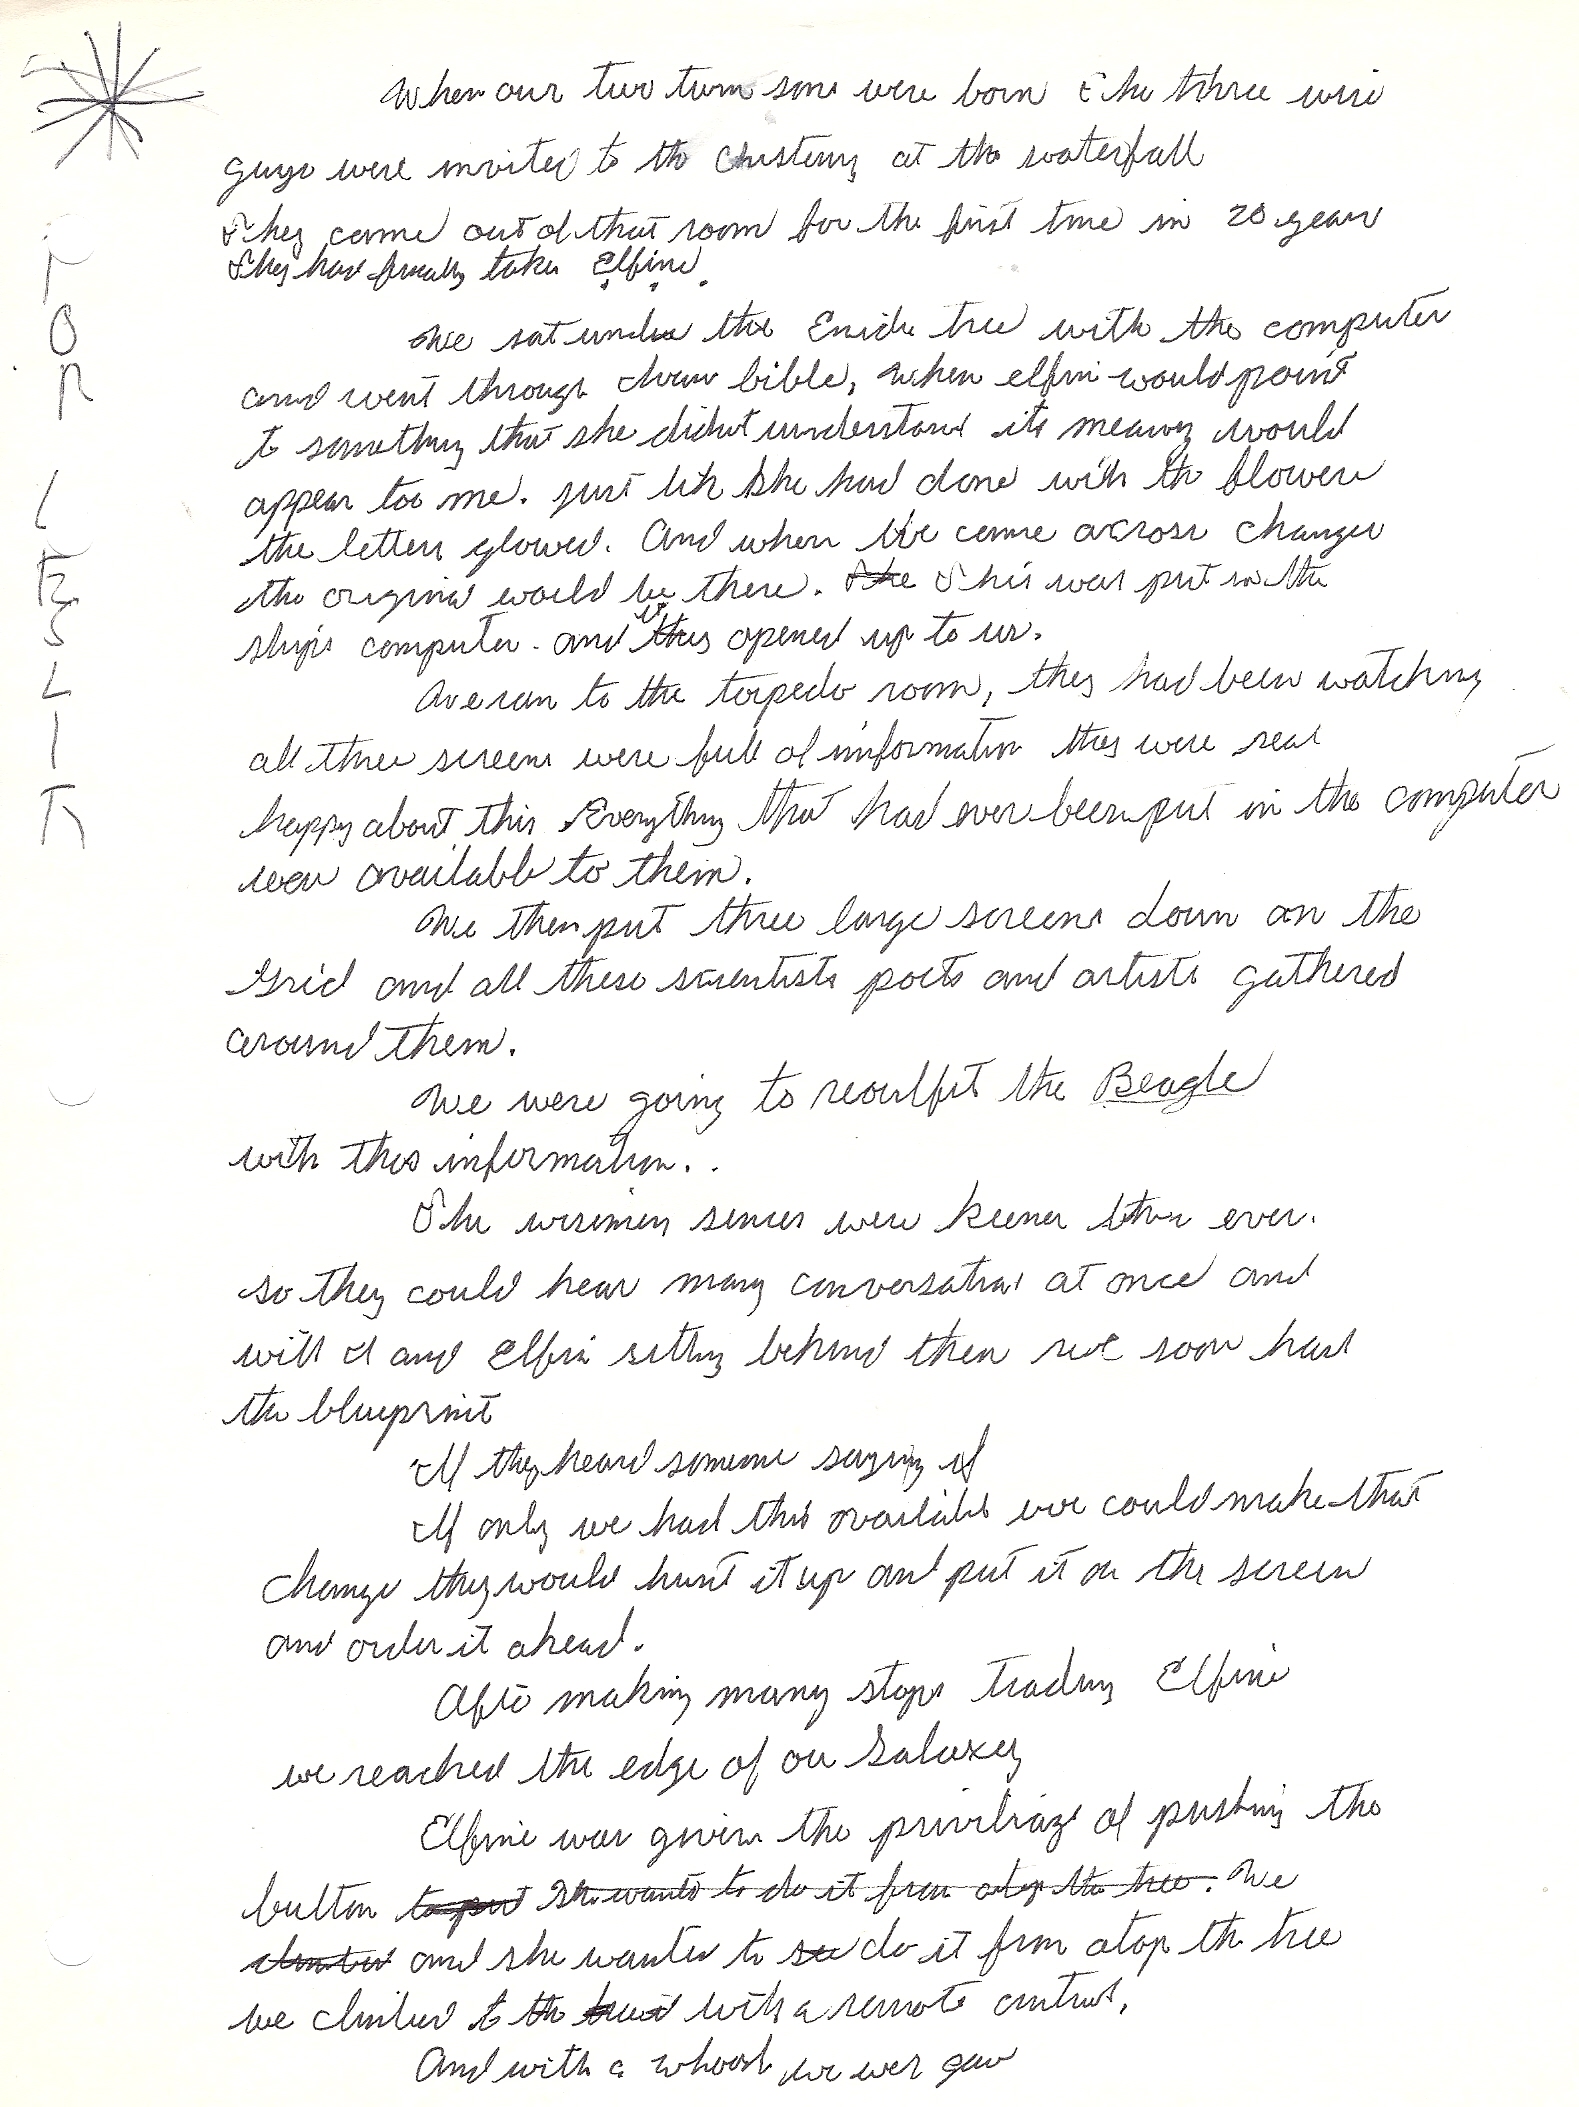 When our two twin sons were born the three wise
guys were invited to the at the waterfall
They came out of that room for the first time in 20 years
They had finally taken Elfine.
We sat under the tree with the computer
and went through bible, when elfin would point
to something that she didnt understand its meaning would
appear too me. just lik she had done with th flowers
the letters glowed. And when We came across changes
the original would be there. The This was put in the
ships computer. and opened up to us.
We ran to the torpedo room, they had been watching
all three screens were full of information they were real
happy about this Everything that had ever been put in the computer
was available to them.
We then put three large screens down on the
Grid and all these scientists poets and artists gathered
around them.
We were going to reoutfit the Beagle
with this information..
The wisemen senses were keener than ever.
so they could hear many conversations at once and
with I and Elfin sitting behind them we soon had
the blueprint
If they heard someone saying if
If only we had this available we could make that
change they would hunt it up and put it on the screen
and order it ahead.
After making many stops trading Elfine
we reached the edge of our Galaxey
Elfine was given the of pushing the
button to put She wants to do it from atop the tree. We
climbed and she wanted to see do it from atop th tree
we climbed to th with a remote control.
And with a whoosh we wer